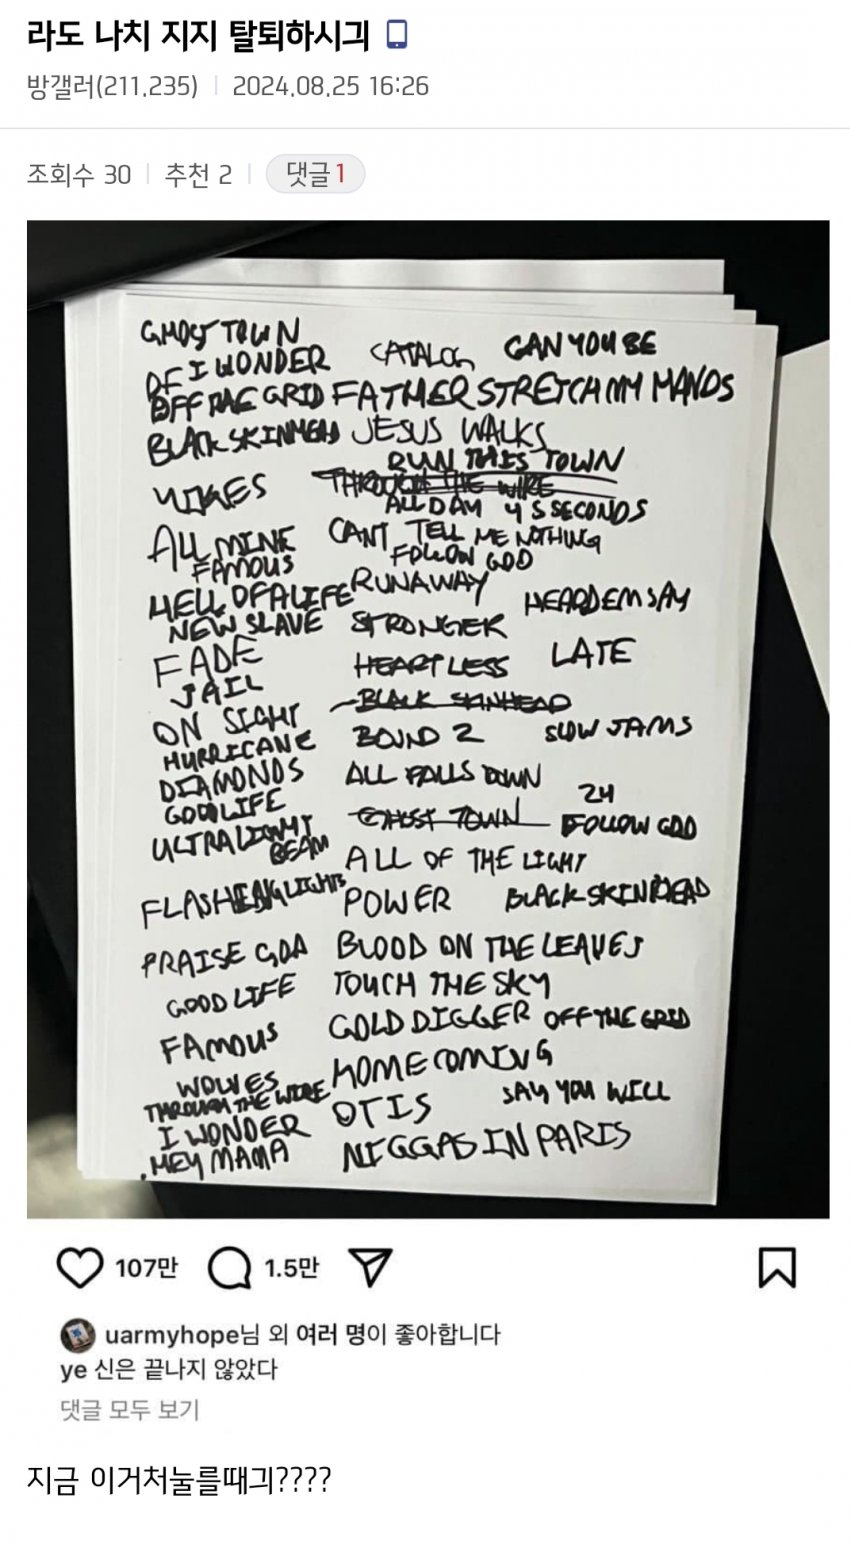 라도 나치 지지 탈퇴하시긔
방갤러(211.235) 2024.08.25 16:26
조회수 30 추천 2 댓글 1
GHOST TOWN
OF I WONDER CATALOG CAN YOU BE
OFF THE GRID FATHER STRETCH MY HANDS
BLACK SKINHEAD JESUS WALKS
RUN THIS TOWN
YIKES THROUGH THE WIRE
ALL DAY 4 5 SECONDS
ALL MINE CANT TELL ME NOTHING
FAMOUS FOLLOW GOD
HELL OF A LIFE RUNAWAY HEARD EM SAY
NEW SLAVE STRONGER
FADE HEARTLESS LATE
JAIL
ON SIGHT BLACK SKINHEAD
HURRICANE BOUND 2 SLOW JAMS
DIAMONDS ALL FALLS DOWN
GOOD LIFE 24
ULTRALIGHT GHOST TOWN FOLLOW GOD
BEAM ALL OF THE LIGHT
FLASHING LIGHTS POWER BLACK SKINHEAD
PRAISE GOD BLOOD ON THE LEAVES
GOOD LIFE TOUCH THE SKY
FAMOUS GOLD DIGGER OFF THE GRID
WOLVES HOMECOMING
THROUGH THE WIRE OTIS SAY YOU WILL
I WONDER
HEY MAMA NIGGAS IN PARIS
107만 1.5만
uarmyhope님 외 여러 명이 좋아합니다
ye 신은 끝나지 않았다
댓글 모두 보기
지금 이거처눌를때긔????